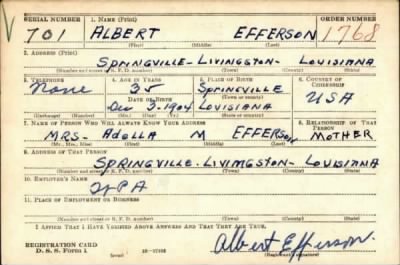 SERIAL NUMBER 1. NAME (Print) ORDER NUMBER
701 ALBERT EFFERSON 1768
(First) (Middle) (Last)
2. ADDRESS (Print)
SPRINGVILLE-LIVINGSTON-LOUISIANA
(Number and street or R. F. D. number) (Town) (County) (State)
3. TELEPHONE 4. AGE IN YEARS 5. PLACE OF BIRTH 6. COUNTRY OF CITIZENSHIP
None 35 SPRINGVILLE
DATE OF BIRTH (Town or county) USA
Dec 3-1904 LOUISIANA
(Exchange) (Number) (Mo.) (Day) (Yr.) (State or country)
7. NAME OF PERSON WHO WILL ALWAYS KNOW YOUR ADDRESS 8. RELATIONSHIP OF THAT PERSON
MRS- Adella M EFFERSON MOTHER
(Mr., Mrs., Miss) (First) (Middle) (Last)
9. ADDRESS OF THAT PERSON
SPRINGVILLE-LIVINGSTON-LOUISIANA
(Number and street or R. F. D. number) (Town) (County) (State)
10. EMPLOYER'S NAME
WPA
11. PLACE OF EMPLOYMENT OR BUSINESS
(Number and street or R. F. D. number) (Town) (County) (State)
I AFFIRM THAT I HAVE VERIFIED ABOVE ANSWERS AND THAT THEY ARE TRUE.
REGISTRATION CARD
D. S. S. Form 1 (over) Albert Efferson
(Registrant's signature)